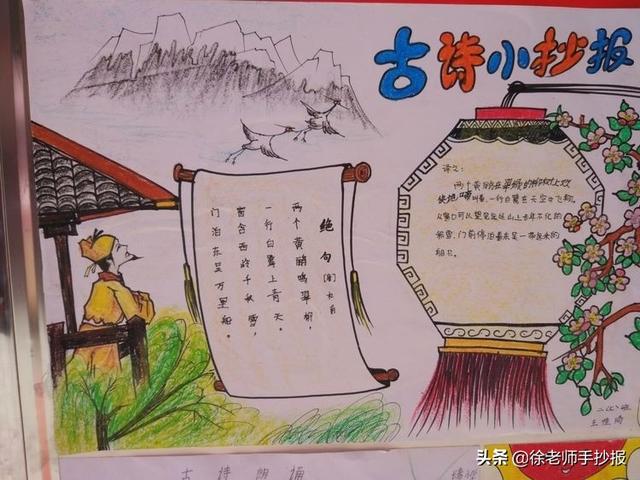 古诗小抄报
绝句
两个黄鹂鸣翠柳，
一行白鹭上青天。
窗含西岭千秋雪，
门泊东吴万里船。
译文：
两个黄鹂在翠绿的柳树上欢
快地鸣叫着，一行白鹭在天空中飞翔，
从窗口可以望见山上千年不化的
积雪，门前停泊着来的
船只。
班
古诗朗诵
头条 @徐老师手抄报